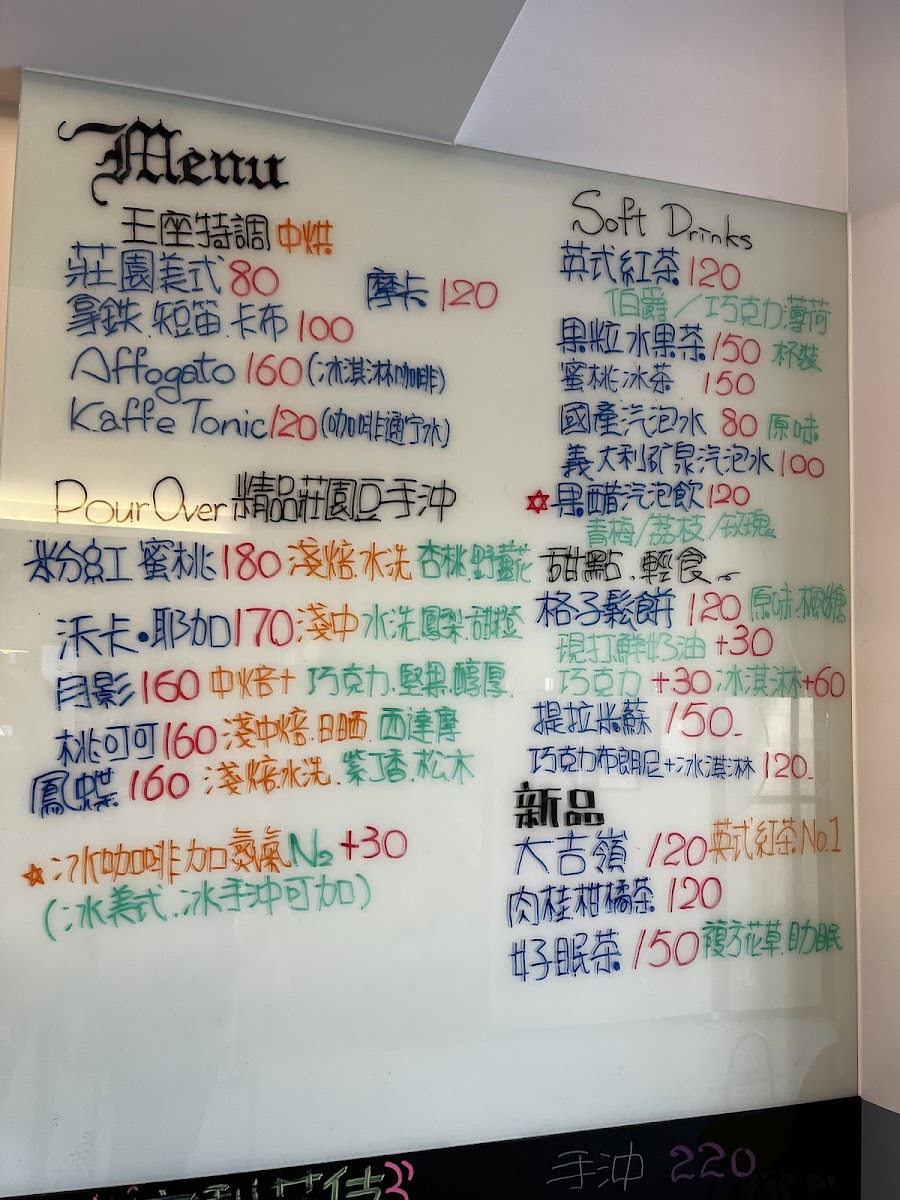 Menu
王座特調 中烘
莊園美式 80 摩卡 120
拿鉄.短笛.卡布 100
Affogato 160 (冰淇淋咖啡)
Kaffe Tonic 120 (咖啡通宁水)
Pour Over 精品莊園豆手沖
粉紅蜜桃 180 淺焙.水洗 杏桃.野薑花
沃卡·耶加 170 淺中 水洗.鳳梨.甜橙
月影 160 中焙+ 巧克力.堅果.醇厚
桃可可 160 淺中焙.日晒.西達摩
鳳蝶 160 淺焙.水洗.紫丁香.松木
☆冰咖啡加氮氣N₂ +30
(冰美式.冰手沖可加)
Soft Drinks
英式紅茶 120
伯爵/巧克力.薄荷
果粒水果茶 150 杯裝
蜜桃冰茶 150
國產汽泡水 80 原味
義大利矿泉汽泡水 100
✡果醋汽泡飲 120
青梅/荔枝/玫瑰
甜點.輕食
格子鬆餅 120 原味.楓糖
現打鮮奶油 +30
巧克力 +30 冰淇淋+60
提拉米蘇 150
巧克力布朗尼+冰淇淋 120
新品
大吉嶺 120 英式紅茶No.1
肉桂柑橘茶 120
好眠茶 150 複方花草.助眠
手沖 220